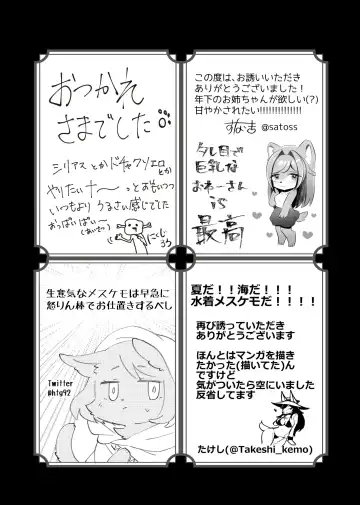 おつかれ
さまでした
シリアスとかドチャクソエロとか
やりたいナ〜っとおもいつつ
いつもより うるさい感じでてた
おっぱいぱいー
この度は、お誘いいただき
ありがとうございました！
年下のお姉ちゃんが欲しい(?)
甘やかされたい!!!!!!!!!!!!!!
すなま @satoss
タレ目で
巨乳な
おねーさん
is
最高
生意気なメスケモは早急に
怒りん棒でお仕置きするべし
Twitter
@htg92
夏だ！！海だ！！！
水着メスケモだ！！！！
再び誘っていただき
ありがとうございます
ほんとはマンガを描き
たかった(描いてた)ん
ですけど
気がついたら空にいました
反省してます
たけし(@Takeshi_kemo)